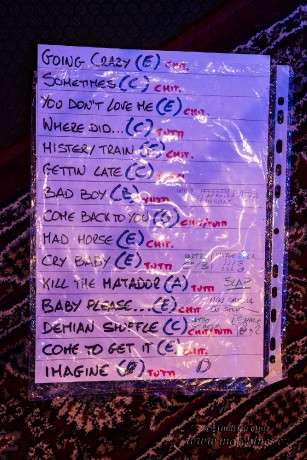 GOING CRAZY (E) CHIT.
SOMETIMES (C) CHIT.
YOU DON'T LOVE ME (E) CHIT.
WHERE DID... (C) TUTTI
HISTERY TRAIN CHIT.
GETTIN LATE (C)
BAD BOY (E)
COME BACK TO YOU CHIT/TUTTI
MAD HORSE (E) CHIT.
CRY BABY (E) TUTTI
KILL THE MATADOR (A) TUTTI SLAP
BABY PLEASE... (E) CHIT.
DEMIAN SHUFFLE (C) CHIT/TUTTI
COME TO GET IT (E) CHIT.
IMAGINE TUTTI D